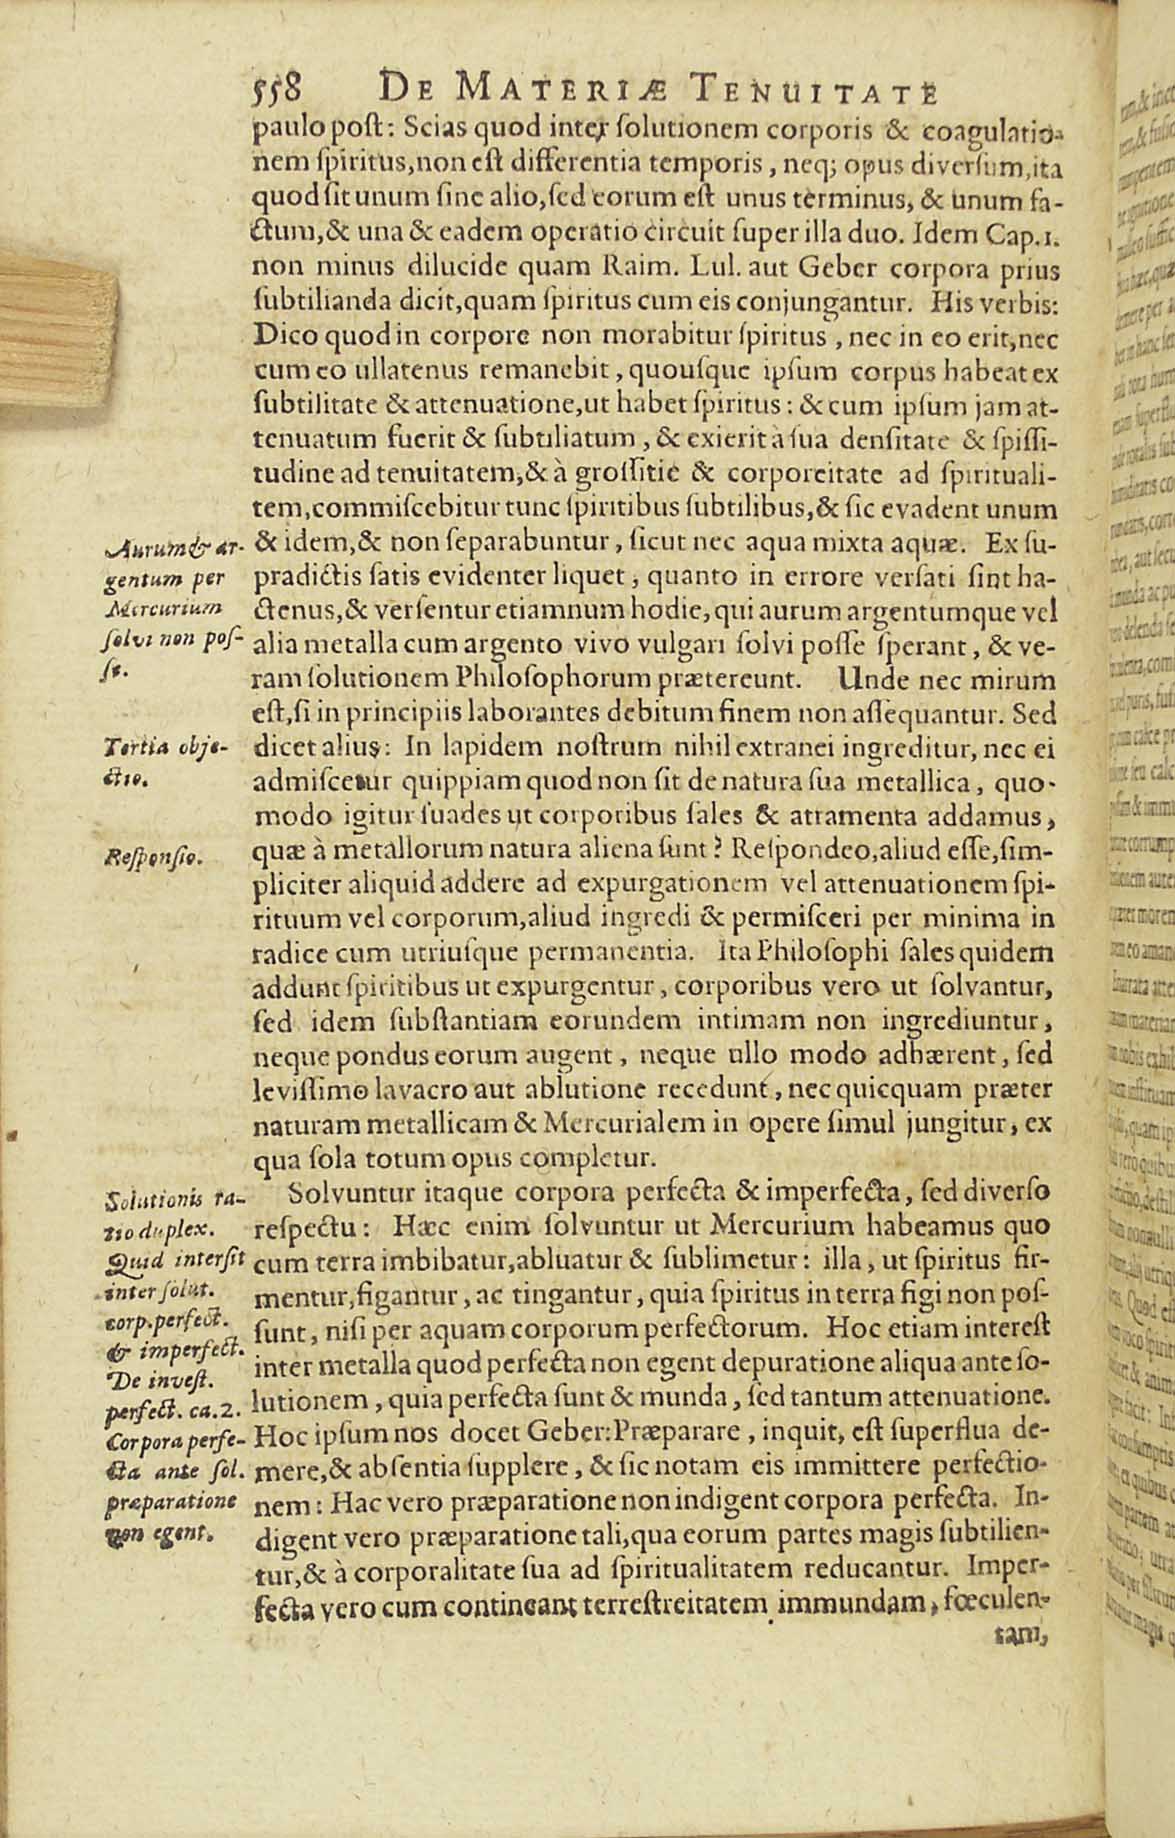 558 DE MATERIÆ TENUITATE
paulo poſt: Scias quod inter ſolutionem corporis & coagulatio-
nem ſpiritus, non eſt differentia temporis, neq; opus diverſum, ita
quod ſit unum ſine alio, ſed eorum eſt unus terminus, & unum fa-
ctum, & una & eadem operatio circuit ſuper illa duo. Idem Cap. 1.
non minus dilucide quam Raim. Lul. aut Geber corpora prius
ſubtilianda dicit, quam ſpiritus cum eis conjungantur. His verbis:
Dico quod in corpore non morabitur ſpiritus, nec in eo erit, nec
cum eo ullatenus remanebit, quouſque ipſum corpus habeat ex
ſubtilitate & attenuatione, ut habet ſpiritus: & cum ipſum jam at-
tenuatum fuerit & ſubtiliatum, & exierit à ſua denſitate & ſpiſſi-
tudine ad tenuitatem, & à groſſitie & corporeitate ad ſpirituali-
tem, commiſcebitur tunc ſpiritibus ſubtilibus, & ſic evadent unum
& idem, & non ſeparabuntur, ſicut nec aqua mixta aquæ. Ex ſu-
pradictis ſatis evidenter liquet, quanto in errore verſati ſint ha-
ctenus, & verſentur etiamnum hodie, qui aurum argentumque vel
alia metalla cum argento vivo vulgari ſolvi poſſe ſperant, & ve-
ram ſolutionem Philoſophorum prætereunt. Unde nec mirum
eſt, ſi in principiis laborantes debitum finem non aſſequantur. Sed
dicet alius: In lapidem noſtrum nihil extranei ingreditur, nec ei
admiſcetur quippiam quod non ſit de natura ſua metallica, quo-
modo igitur ſuades ut corporibus ſales & atramenta addamus,
quæ à metallorum natura aliena ſunt? Reſpondeo, aliud eſſe, ſim-
pliciter aliquid addere ad expurgationem vel attenuationem ſpi-
rituum vel corporum, aliud ingredi & permiſceri per minima in
radice cum utriuſque permanentia. Ita Philoſophi ſales quidem
addunt ſpiritibus ut expurgentur, corporibus vero ut ſolvantur,
ſed idem ſubſtantiam eorundem intimam non ingrediuntur,
neque pondus eorum augent, neque ullo modo adhærent, ſed
leviſſimo lavacro aut ablutione recedunt, nec quicquam præter
naturam metallicam & Mercurialem in opere ſimul jungitur, ex
qua ſola totum opus completur.
Solvuntur itaque corpora perfecta & imperfecta, ſed diverſo
reſpectu: Hæc enim ſolvuntur ut Mercurium habeamus quo
cum terra imbibatur, abluatur & ſublimetur: illa, ut ſpiritus fir-
mentur, figantur, ac tingantur, quia ſpiritus in terra figi non poſ-
ſunt, niſi per aquam corporum perfectorum. Hoc etiam intereſt
inter metalla quod perfecta non egent depuratione aliqua ante ſo-
lutionem, quia perfecta ſunt & munda, ſed tantum attenuatione.
Hoc ipſum nos docet Geber: Præparare, inquit, eſt ſuperflua de-
mere, & abſentia ſupplere, & ſic notam eis immittere perfectio-
nem: Hac vero præparatione non indigent corpora perfecta. In-
digent vero præparatione tali, qua eorum partes magis ſubtilien-
tur, & à corporalitate ſua ad ſpiritualitatem reducantur. Imper-
fecta vero cum contineant terreſtreitatem immundam, fœculen-
tam,
Aurum & ar-
gentum per
Mercurium
ſolvi non poſ-
ſe.
Tertia obje-
ctio.
Reſponſio.
Solutionis ra-
tio duplex.
Quid interſit
inter ſolut.
corp. perfect.
& imperfect.
De inveſt.
perfect. ca. 2.
Corpora perfe-
cta ante ſol.
præparatione
non egent.